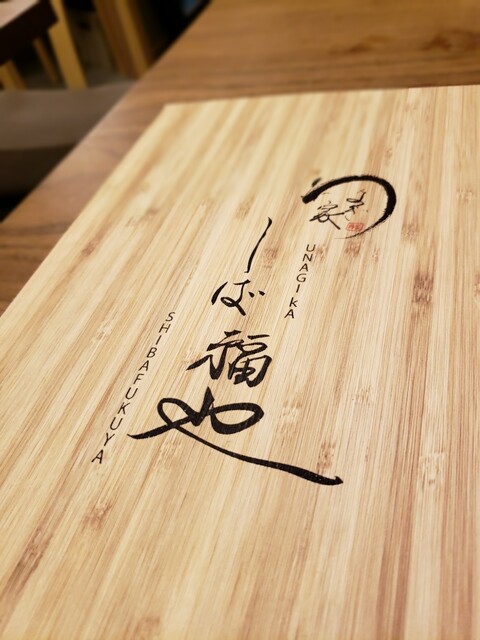 うなぎ家
UNAGIKA
しば福や
SHIBAFUKUYA